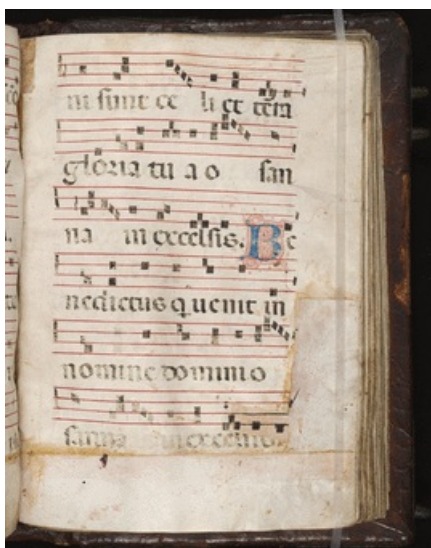 ni sunt ce li et terra
gloria tu a o san
na in excelsis. Be
nedictus q uenit in
nomine domini o
sanna in excelsis.